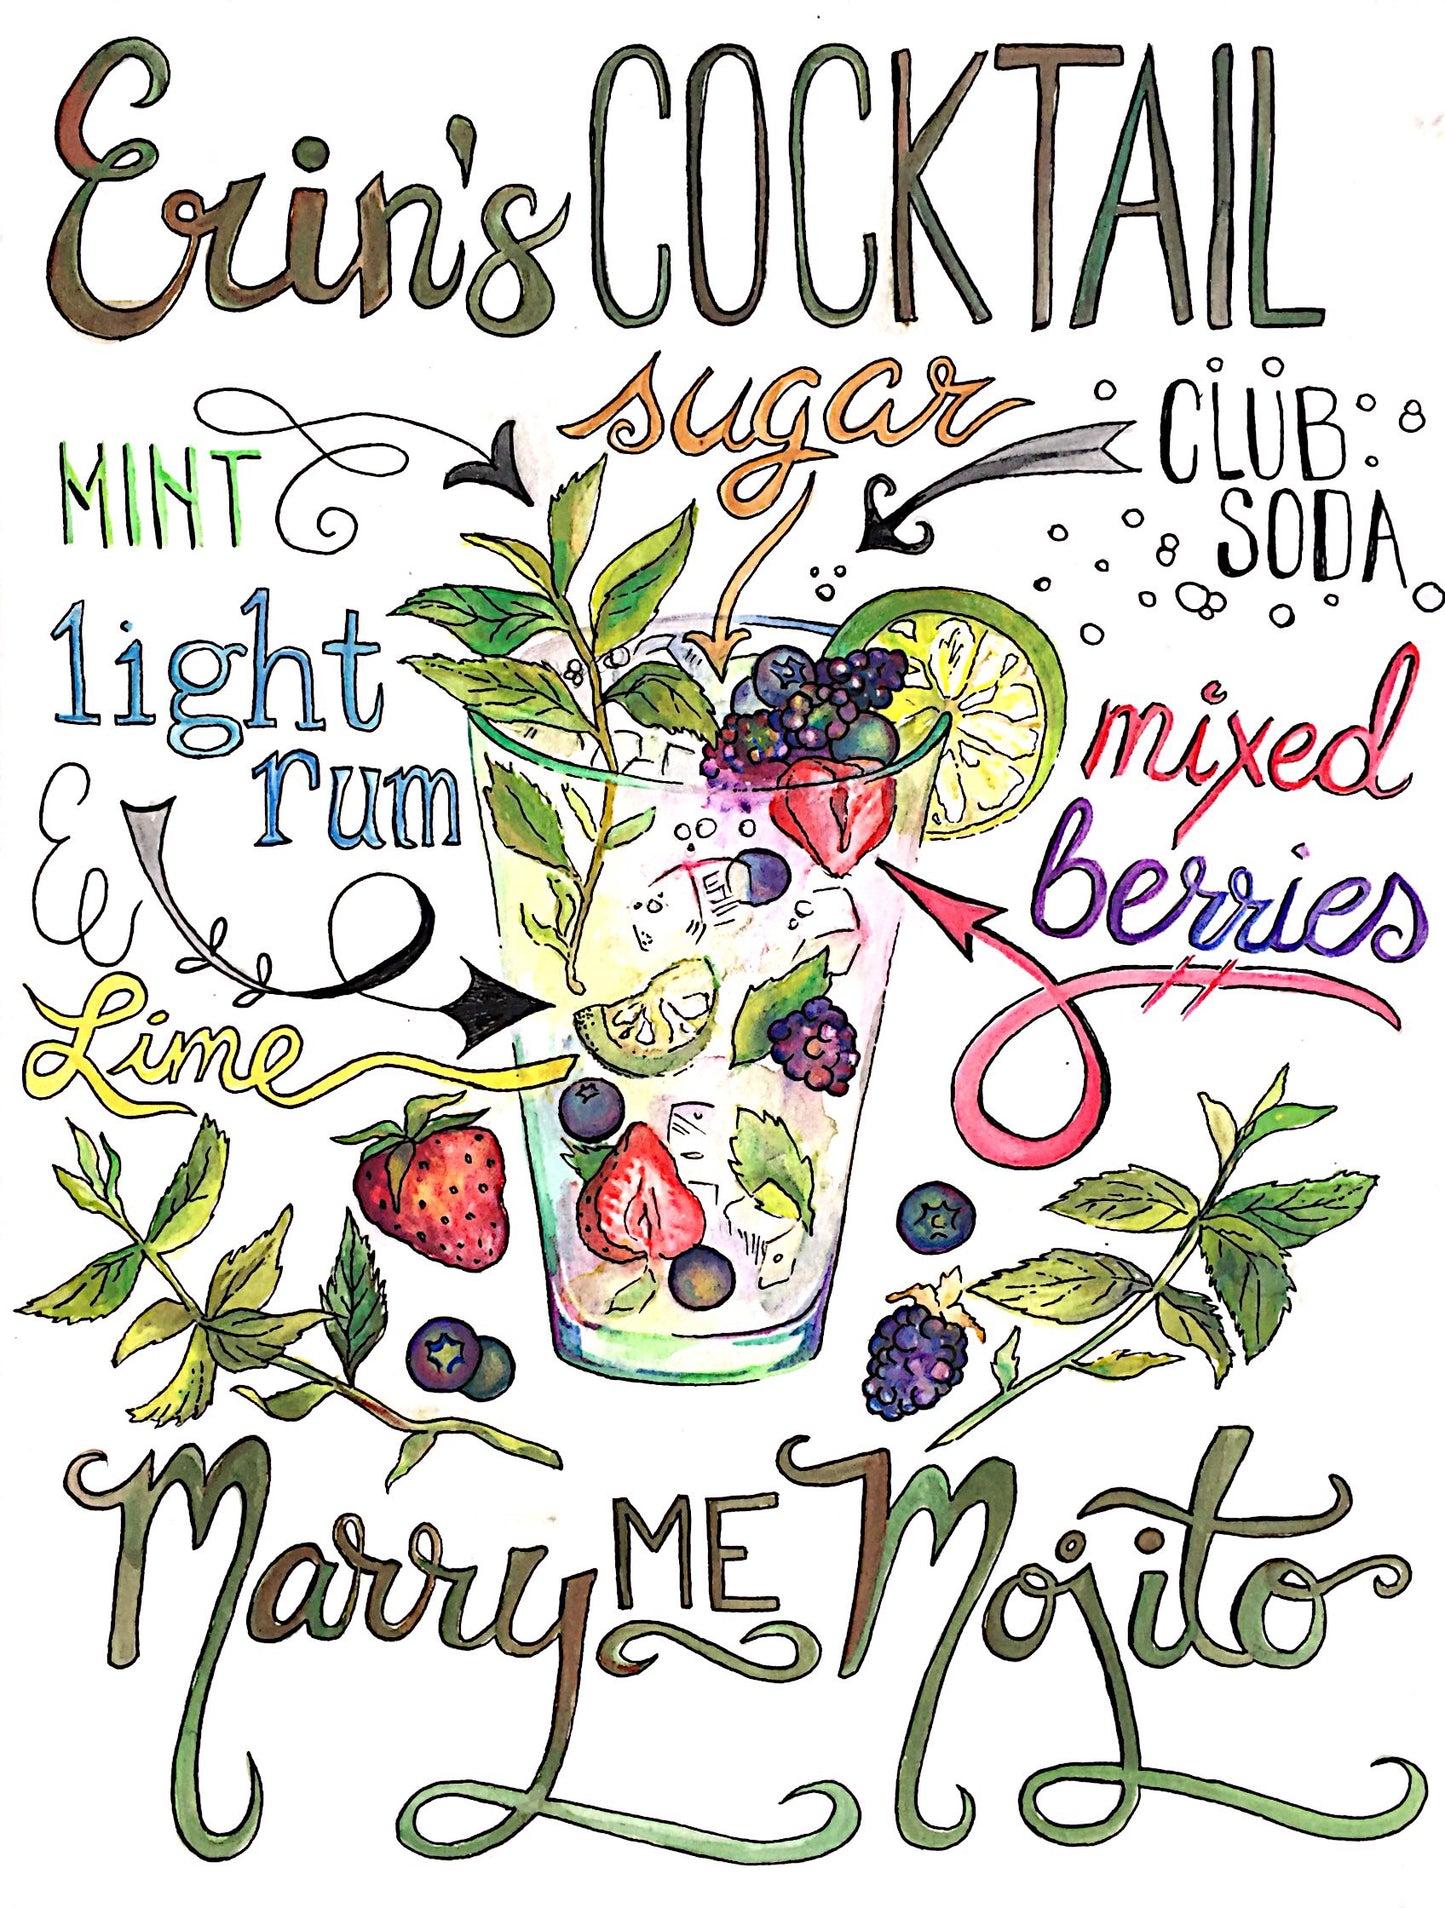 Erin's COCKTAIL
sugar
CLUB
SODA
MINT
light
rum
mixed
berries
&
Lime
Marry ME Mojito